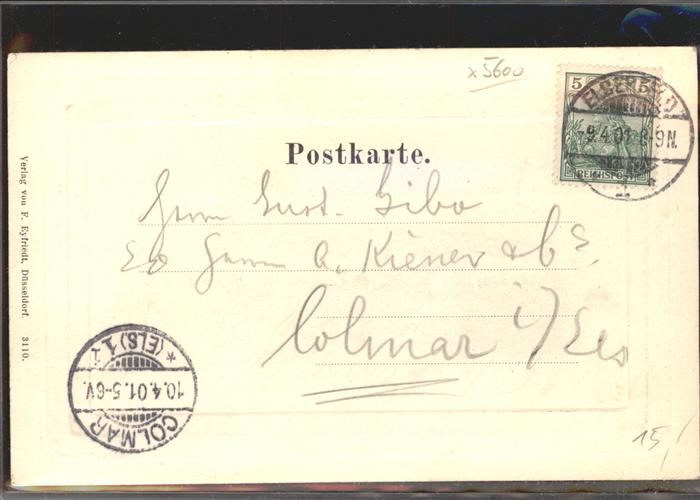 x5600
5
REICHSPOST
ELBERFELD
9.4.01. 8-9N.
Postkarte.
Herrn Gust. Bibo
Herrn A. Kiener & Cº.
Colmar i/Els
Verlag von F. Eyfriedt, Düsseldorf. 3110.
COLMAR
10.4.01. 5-6V.
* (ELS.) 1
15,/